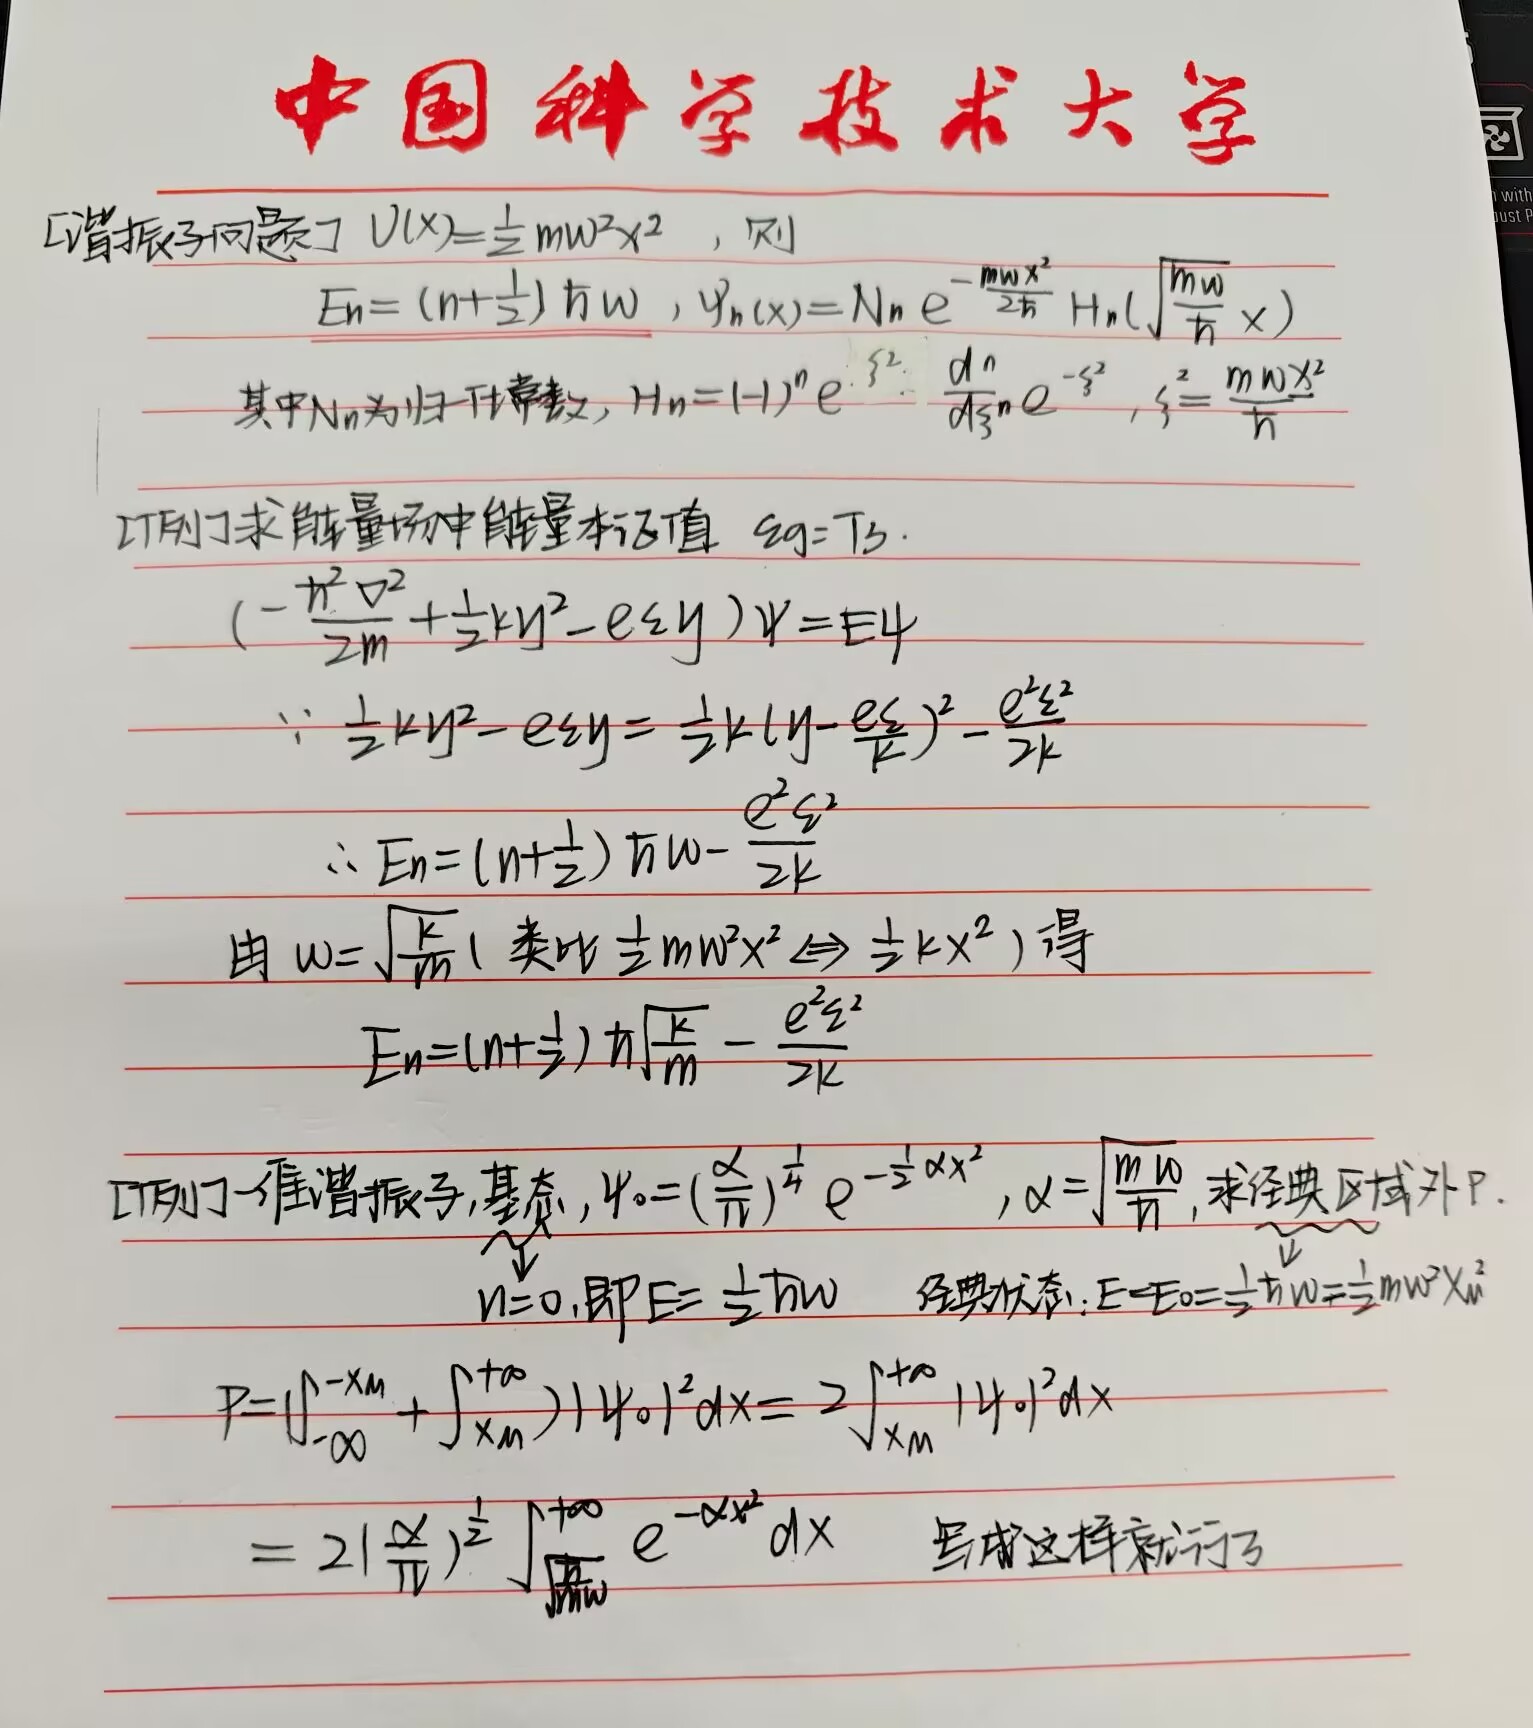 中国科学技术大学
[谐振子问题] U(x)=½mw²x²，则
En=(n+½)ħw，ψn(x)=Nn e^{-mwx²/2ħ} Hn(√(mw/ħ) x)
其中Nn为归一化常数，Hn=(-1)ⁿ e^{ξ²} dⁿ/dξⁿ e^{-ξ²}，ξ²=mwx²/ħ
[例]求能量场中能量本征值 εg=T3.
(-ħ²∇²/2m+½ky²-eεy)ψ=Eψ
∵ ½ky²-eεy=½k(y-eε/k)²-e²ε²/2k
∴ En=(n+½)ħw-e²ε²/2k
由 w=√(k/m)(类比 ½mw²x²⇔½kx²)得
En=(n+½)ħ√(k/m)-e²ε²/2k
[例]一维谐振子,基态,ψ₀=(α/π)^{1/4} e^{-½αx²}，α=√(mw/ħ),求经典区域外P.
n=0,即E=½ħw 经典状态:E=E₀=½ħw=½mw²x_M²
P=(∫_{-∞}^{-x_M}+∫_{x_M}^{+∞})|ψ₀|²dx=2∫_{x_M}^{+∞}|ψ₀|²dx
=2(α/π)^{½}∫_{√(ħ/mw)}^{+∞} e^{-αx²}dx 写成这样就行了